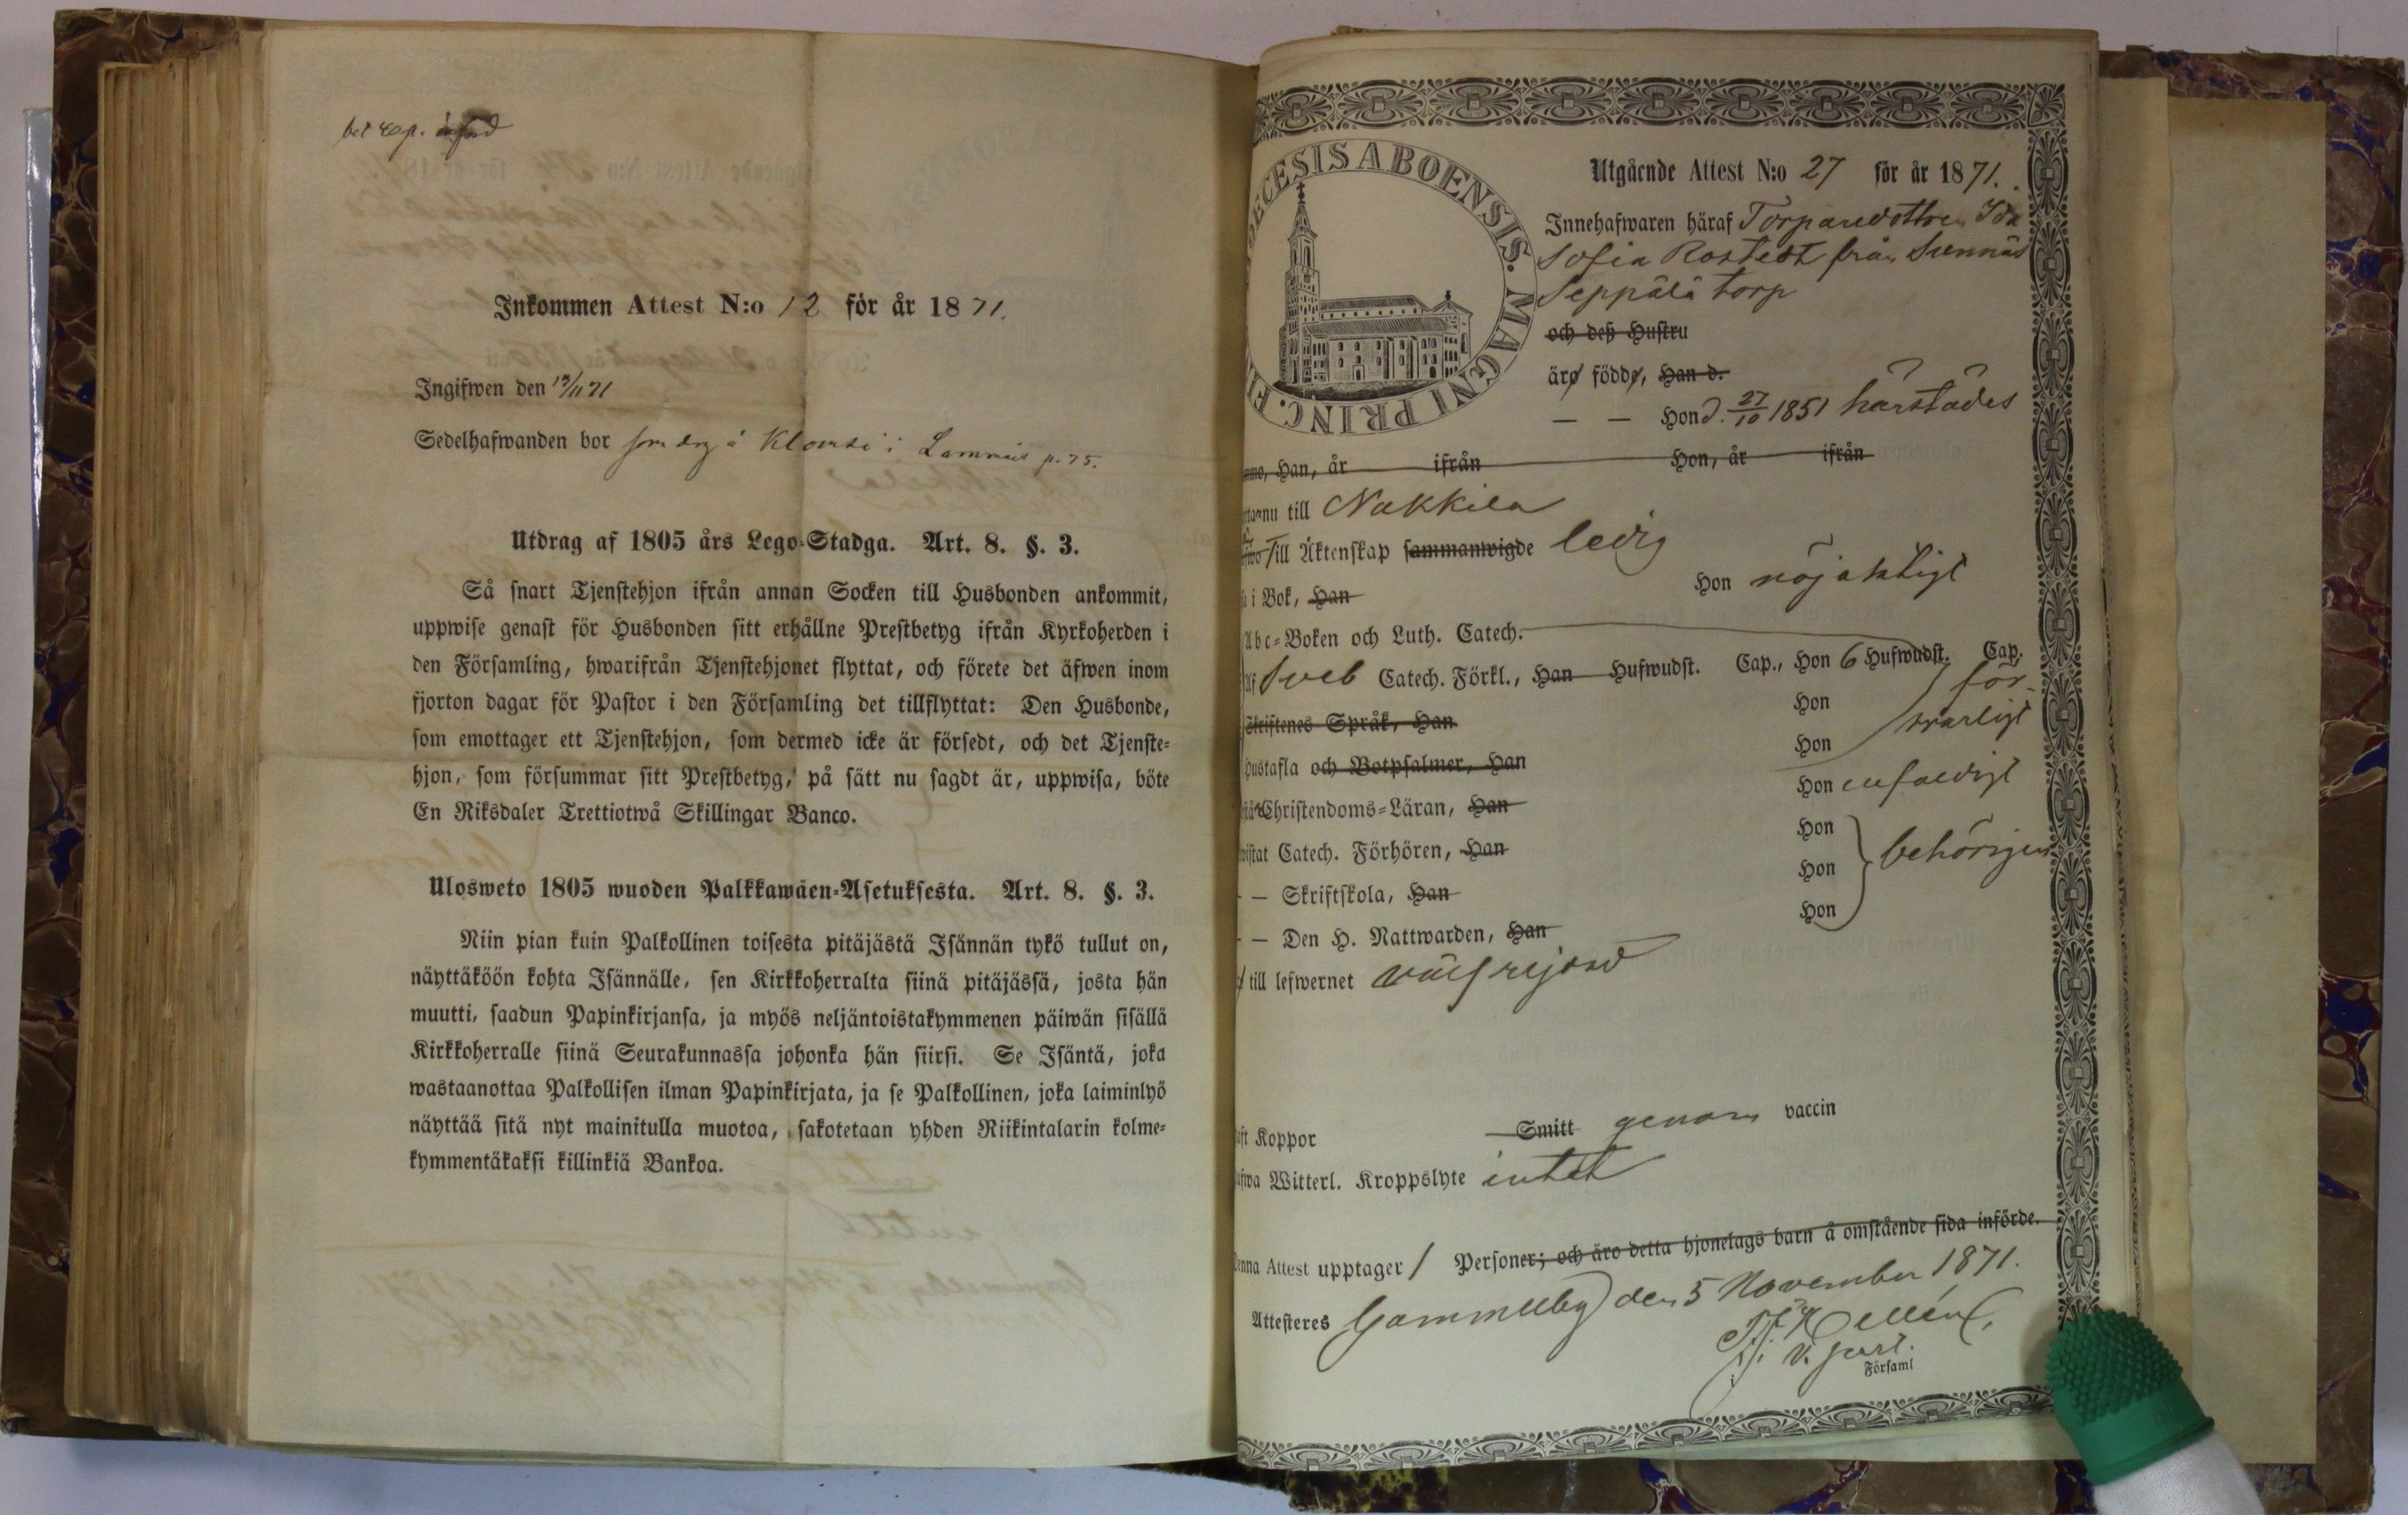 bet 40 p. införd
Inkommen Attest N:o 12 för år 1871.
Ingifwen den 19/11 71
Sedelhafwanden bor som drg å i Lammais p. 75.
Utdrag af 1805 års Lego-Stadga. Art. 8. §. 3.
Så snart Tjenstehjon ifrån annan Socken till Husbonden ankommit,
uppwise genast för Husbonden sitt erhållne Prestbetyg ifrån Kyrkoherden i
den Församling, hwarifrån Tjenstehjonet flyttat, och förete det äfwen inom
fjorton dagar för Pastor i den Församling det tillflyttat: Den Husbonde,
som emottager ett Tjenstehjon, som dermed icke är försedt, och det Tjenste-
hjon, som försummar sitt Prestbetyg, på sätt nu sagdt är, uppwisa, böte
En Riksdaler Trettiotwå Skillingar Banco.
Ulosweto 1805 wuoden Palkkawäen-Asetuksesta. Art. 8. §. 3.
Niin pian kuin Palkollinen toisesta pitäjästä Isännän tykö tullut on,
näyttäköön kohta Isännälle, sen Kirkkoherralta siinä pitäjässä, josta hän
muutti, saadun Papinkirjansa, ja myös neljäntoistakymmenen päiwän sisällä
Kirkkoherralle siinä Seurakunnassa johonka hän siirsi. Se Isäntä, joka
wastaanottaa Palkollisen ilman Papinkirjata, ja se Palkollinen, joka laiminlyö
näyttää sitä nyt mainitulla muotoa, sakotetaan yhden Riikintalarin kolme-
kymmentäkaksi killinkiä Bankoa.
ECESIS ABOENSIS. MAGNI PRINC. FIN
Utgående Attest N:o 27 för år 1871.
Innehafwaren häraf Torparedottren Ida
Sofia Rostedt från Sunnäs
Seppälä torp
och deß Hustru
äro födde, Han d.
— — Hon d. 27/10 1851 härstädes
Han, år ifrån Hon, år ifrån
nu till Nakkila
Till Äktenskap sammanwigde ledig
i Bok, Han Hon nöjaktigt
Abc-Boken och Luth. Catech.
Af Sveb Catech. Förkl., Han Hufwudst. Cap., Hon 6 Hufwudst. Cap.
Skriftenes Språk, Han Hon för-
svarligt
Hustafla och Botpsalmer, Han Hon
Christendoms-Läran, Han Hon enfaldigt
wistat Catech. Förhören, Han Hon
— — Skriftskola, Han Hon behörigen
— — Den H. Nattwarden, Han Hon
till lefwernet välfrejdad
Koppor Smitt genom vaccin
Witterl. Kroppslyte intet
Denna Attest upptager 1 Personer; och äro detta hjonelags barn å omstående sida införde.
Attesteres Gammelby den 5 November 1871.
v. past.
i Församl